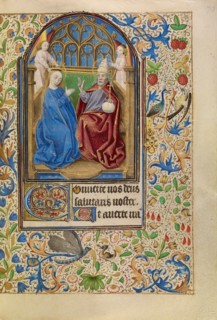 Conuerte nos deus
salutaris noster.
Et auerte ira